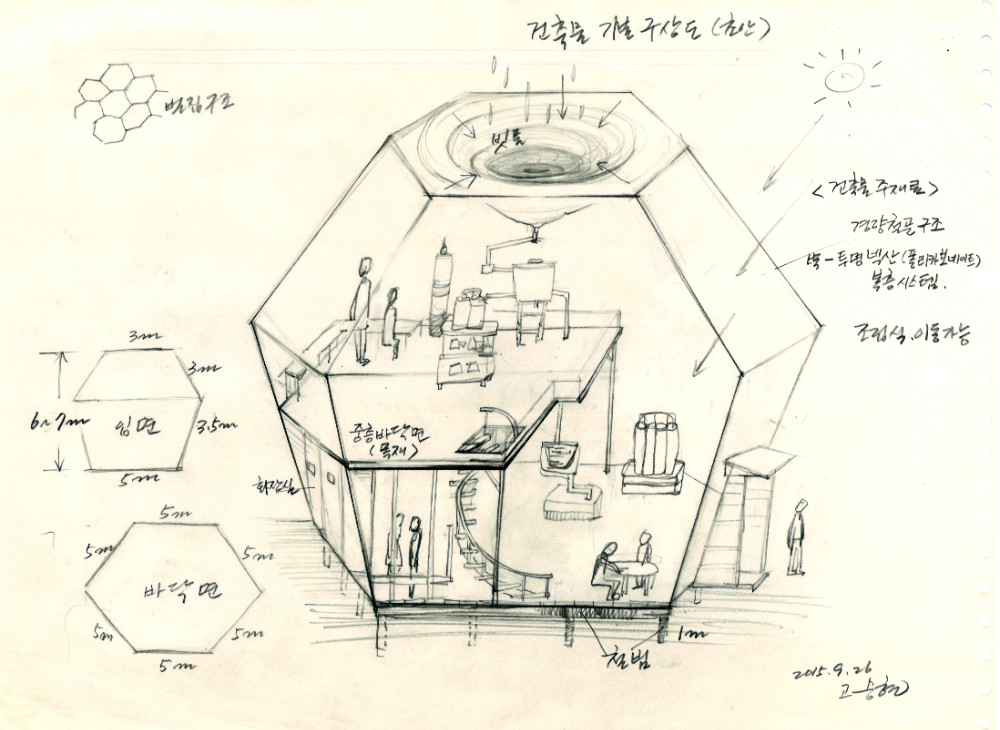 건축물 기본 구상도 (초안)
벌집구조
빗물
<건축물 주재료>
경량철골구조
벽 - 투명 넥산 (폴리카보네이트)
복층시스템.
조립식. 이동가능
3m
3m
6~7m
입면
3.5m
5m
중층바닥면
(목재)
화장실
5m
5m
5m
바닥면
5m
5m
5m
철빔
1m
2015. 9. 26
고승현